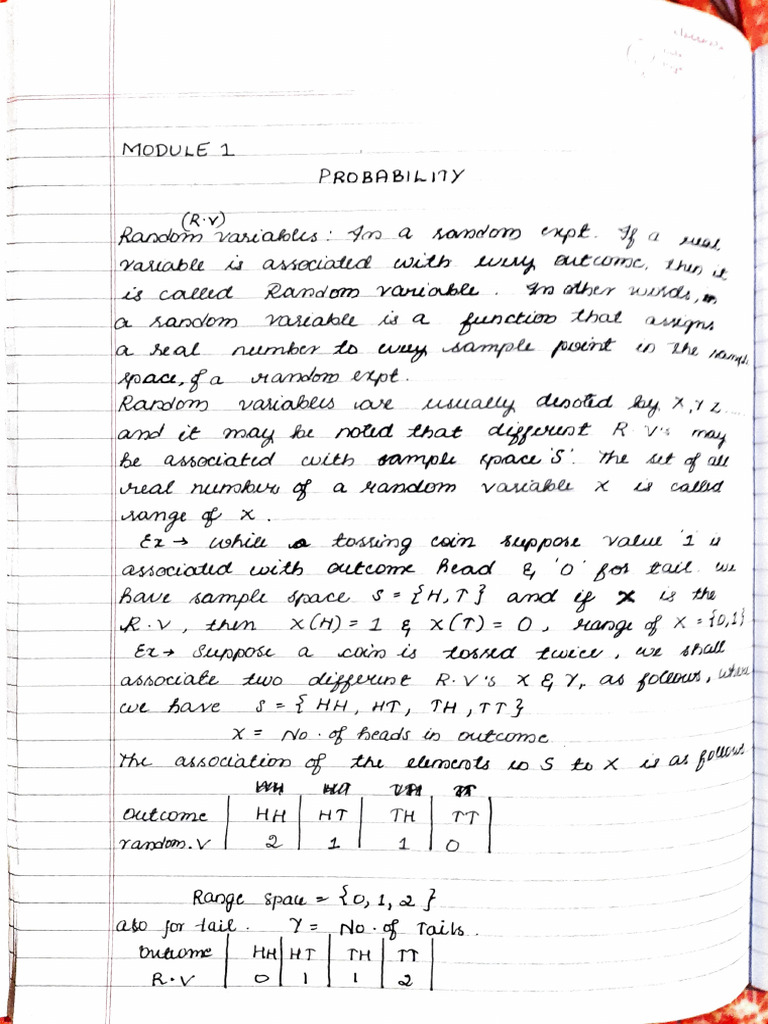 MODULE 1
PROBABILITY
(R.V)
Random variables: In a random expt. If a real
variable is associated with every outcome, then it
is called Random variable. In other words,
a random variable is a function that assigns
a real number to every sample point in the sample
space, of a random expt.
Random variables are usually denoted by X, Y Z....
and it may be noted that different R.V's may
be associated with sample space 'S'. The set of all
real numbers of a random variable X is called
range of X.
Ex → while a tossing coin suppose value '1' is
associated with outcome head & '0' for tail we
have sample space S = {H, T} and if X is the
R.V, then X(H) = 1 & X(T) = 0, range of X = {0,1}
Ex → Suppose a coin is tossed twice, we shall
associate two different R.V's X & Y, as follows, where
we have S = { HH, HT, TH, TT}
X = No. of heads in outcome
The association of the elements in S to X is as follows
outcome | HH | HT | TH | TT |
random.V | 2 | 1 | 1 | 0 |
Range space = {0, 1, 2}
also for tail. Y = No. of Tails.
Outcome | HH | HT | TH | TT |
R.V | 0 | 1 | 1 | 2 |